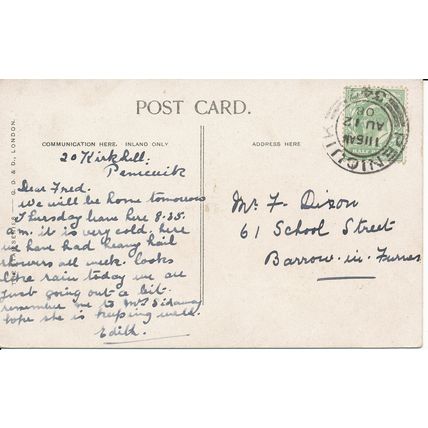 POST CARD.
COMMUNICATION HERE. INLAND ONLY
ADDRESS HERE
20 Kirkhill.
Penicuik
Dear Fred.
We will be home tomorrow
Thursday leave here 8-35
a.m. it is very cold here
we have had heavy hail
showers all week. looks
like rain today we are
just going out a bit.
remember me to Mrs
hope she is keeping well.
Edith.
Mr F. Dixon
61 School Street
Barrow-in-Furness
PENICUIK
1115AM
AU 12
34
HALF
D & D, LONDON.